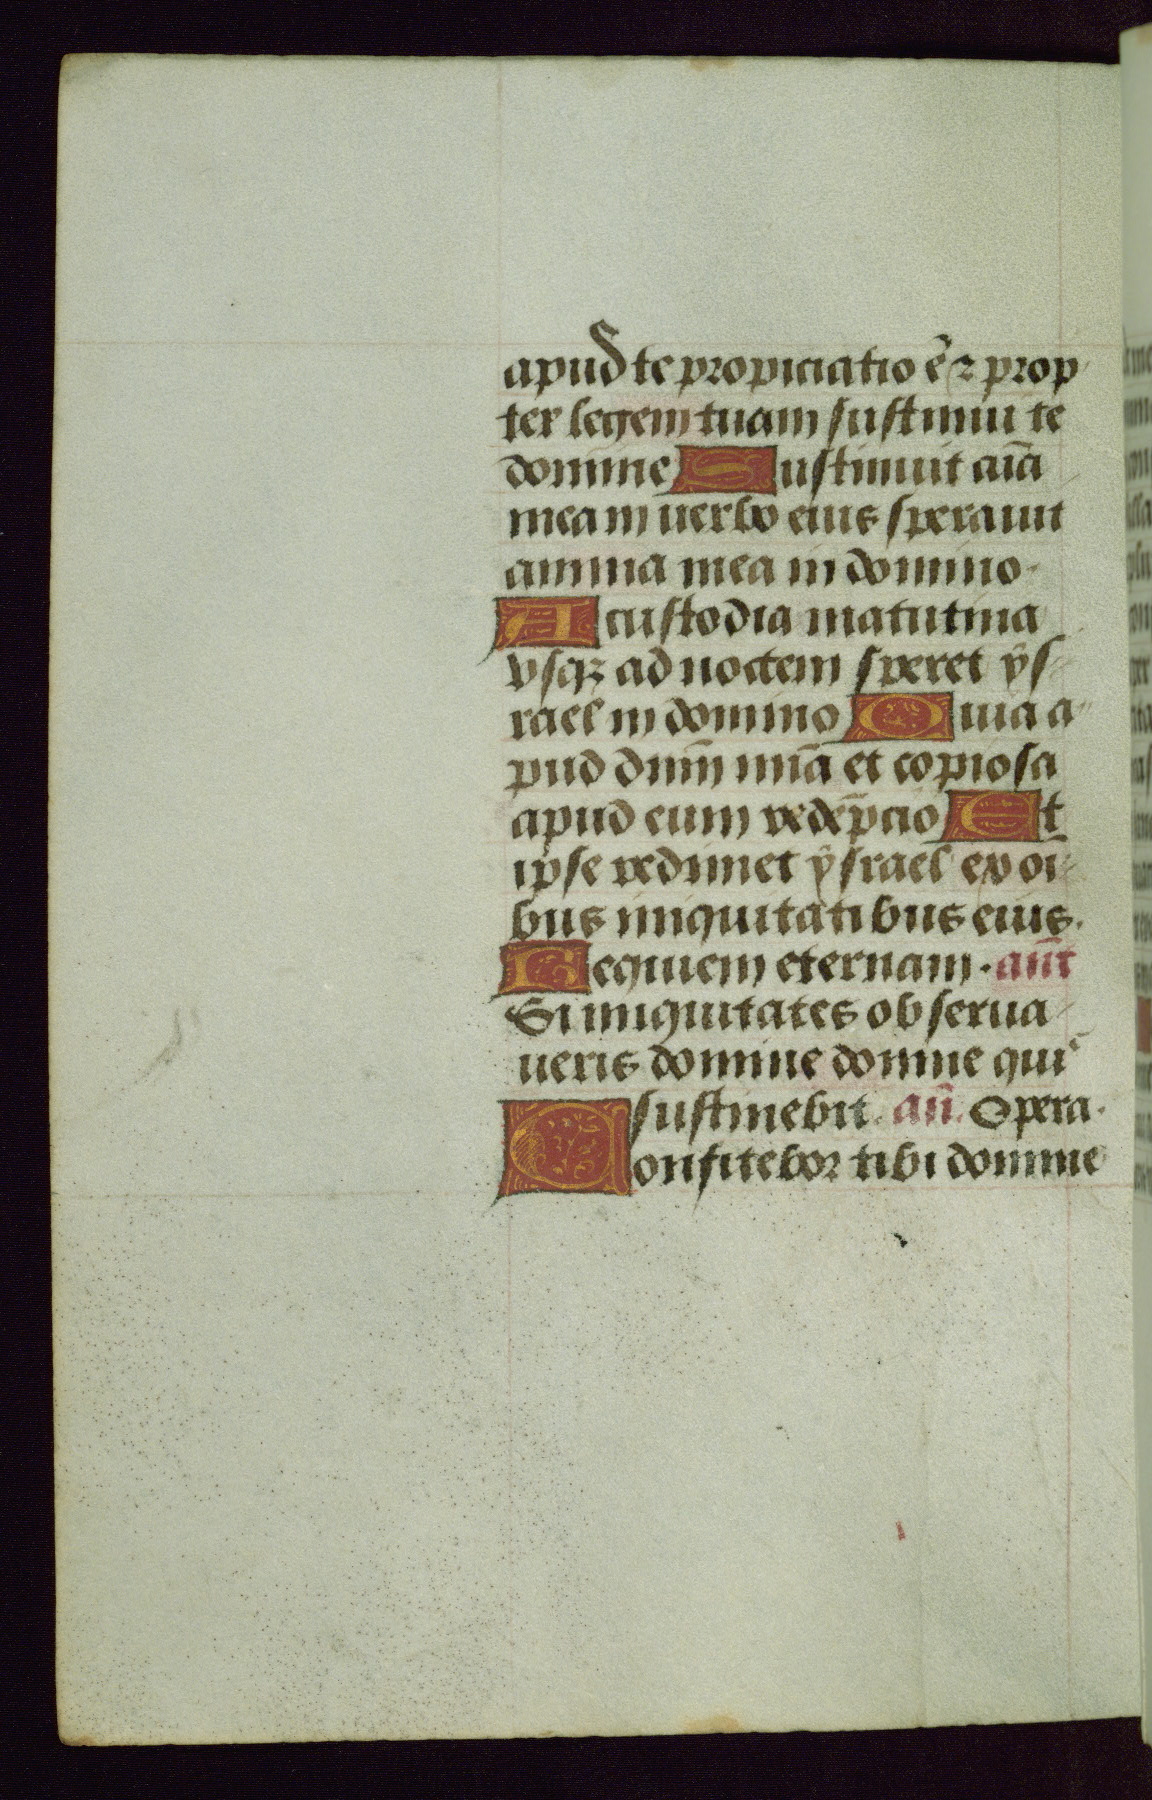 apud te propiciatio ē ⁊ prop
ter legem tuam sustinui te
domine Sustinuit aīa
mea in uerbo eius sperauit
anima mea in domino.
A custodia matutina
vsqꝫ ad noctem speret ys
rael in domino Quia a
pud dnm̄ mīa et copiosa
apud eum redēpcio Et
ipse redimet ysrael ex oī
bus iniquitatibus eius.
Requiem eternam. ant̄
Si iniquitates obserua
ueris domine domine quis
sustinebit. an̄. Opera.
Confitebor tibi domine